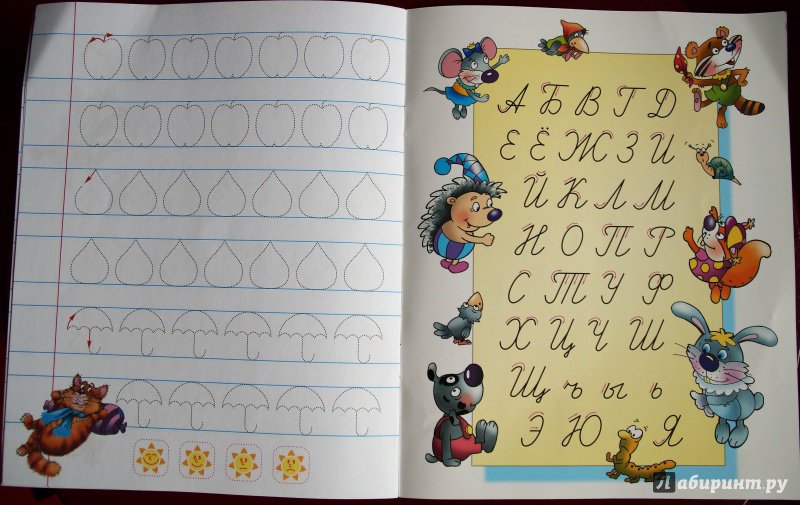 А Б В Г Д
Е Ё Ж З И
Й К Л М
Н О П Р
С Т У Ф
Х Ц Ч Ш
Щ ъ ы ь
Э Ю Я
Лабиринт.ру